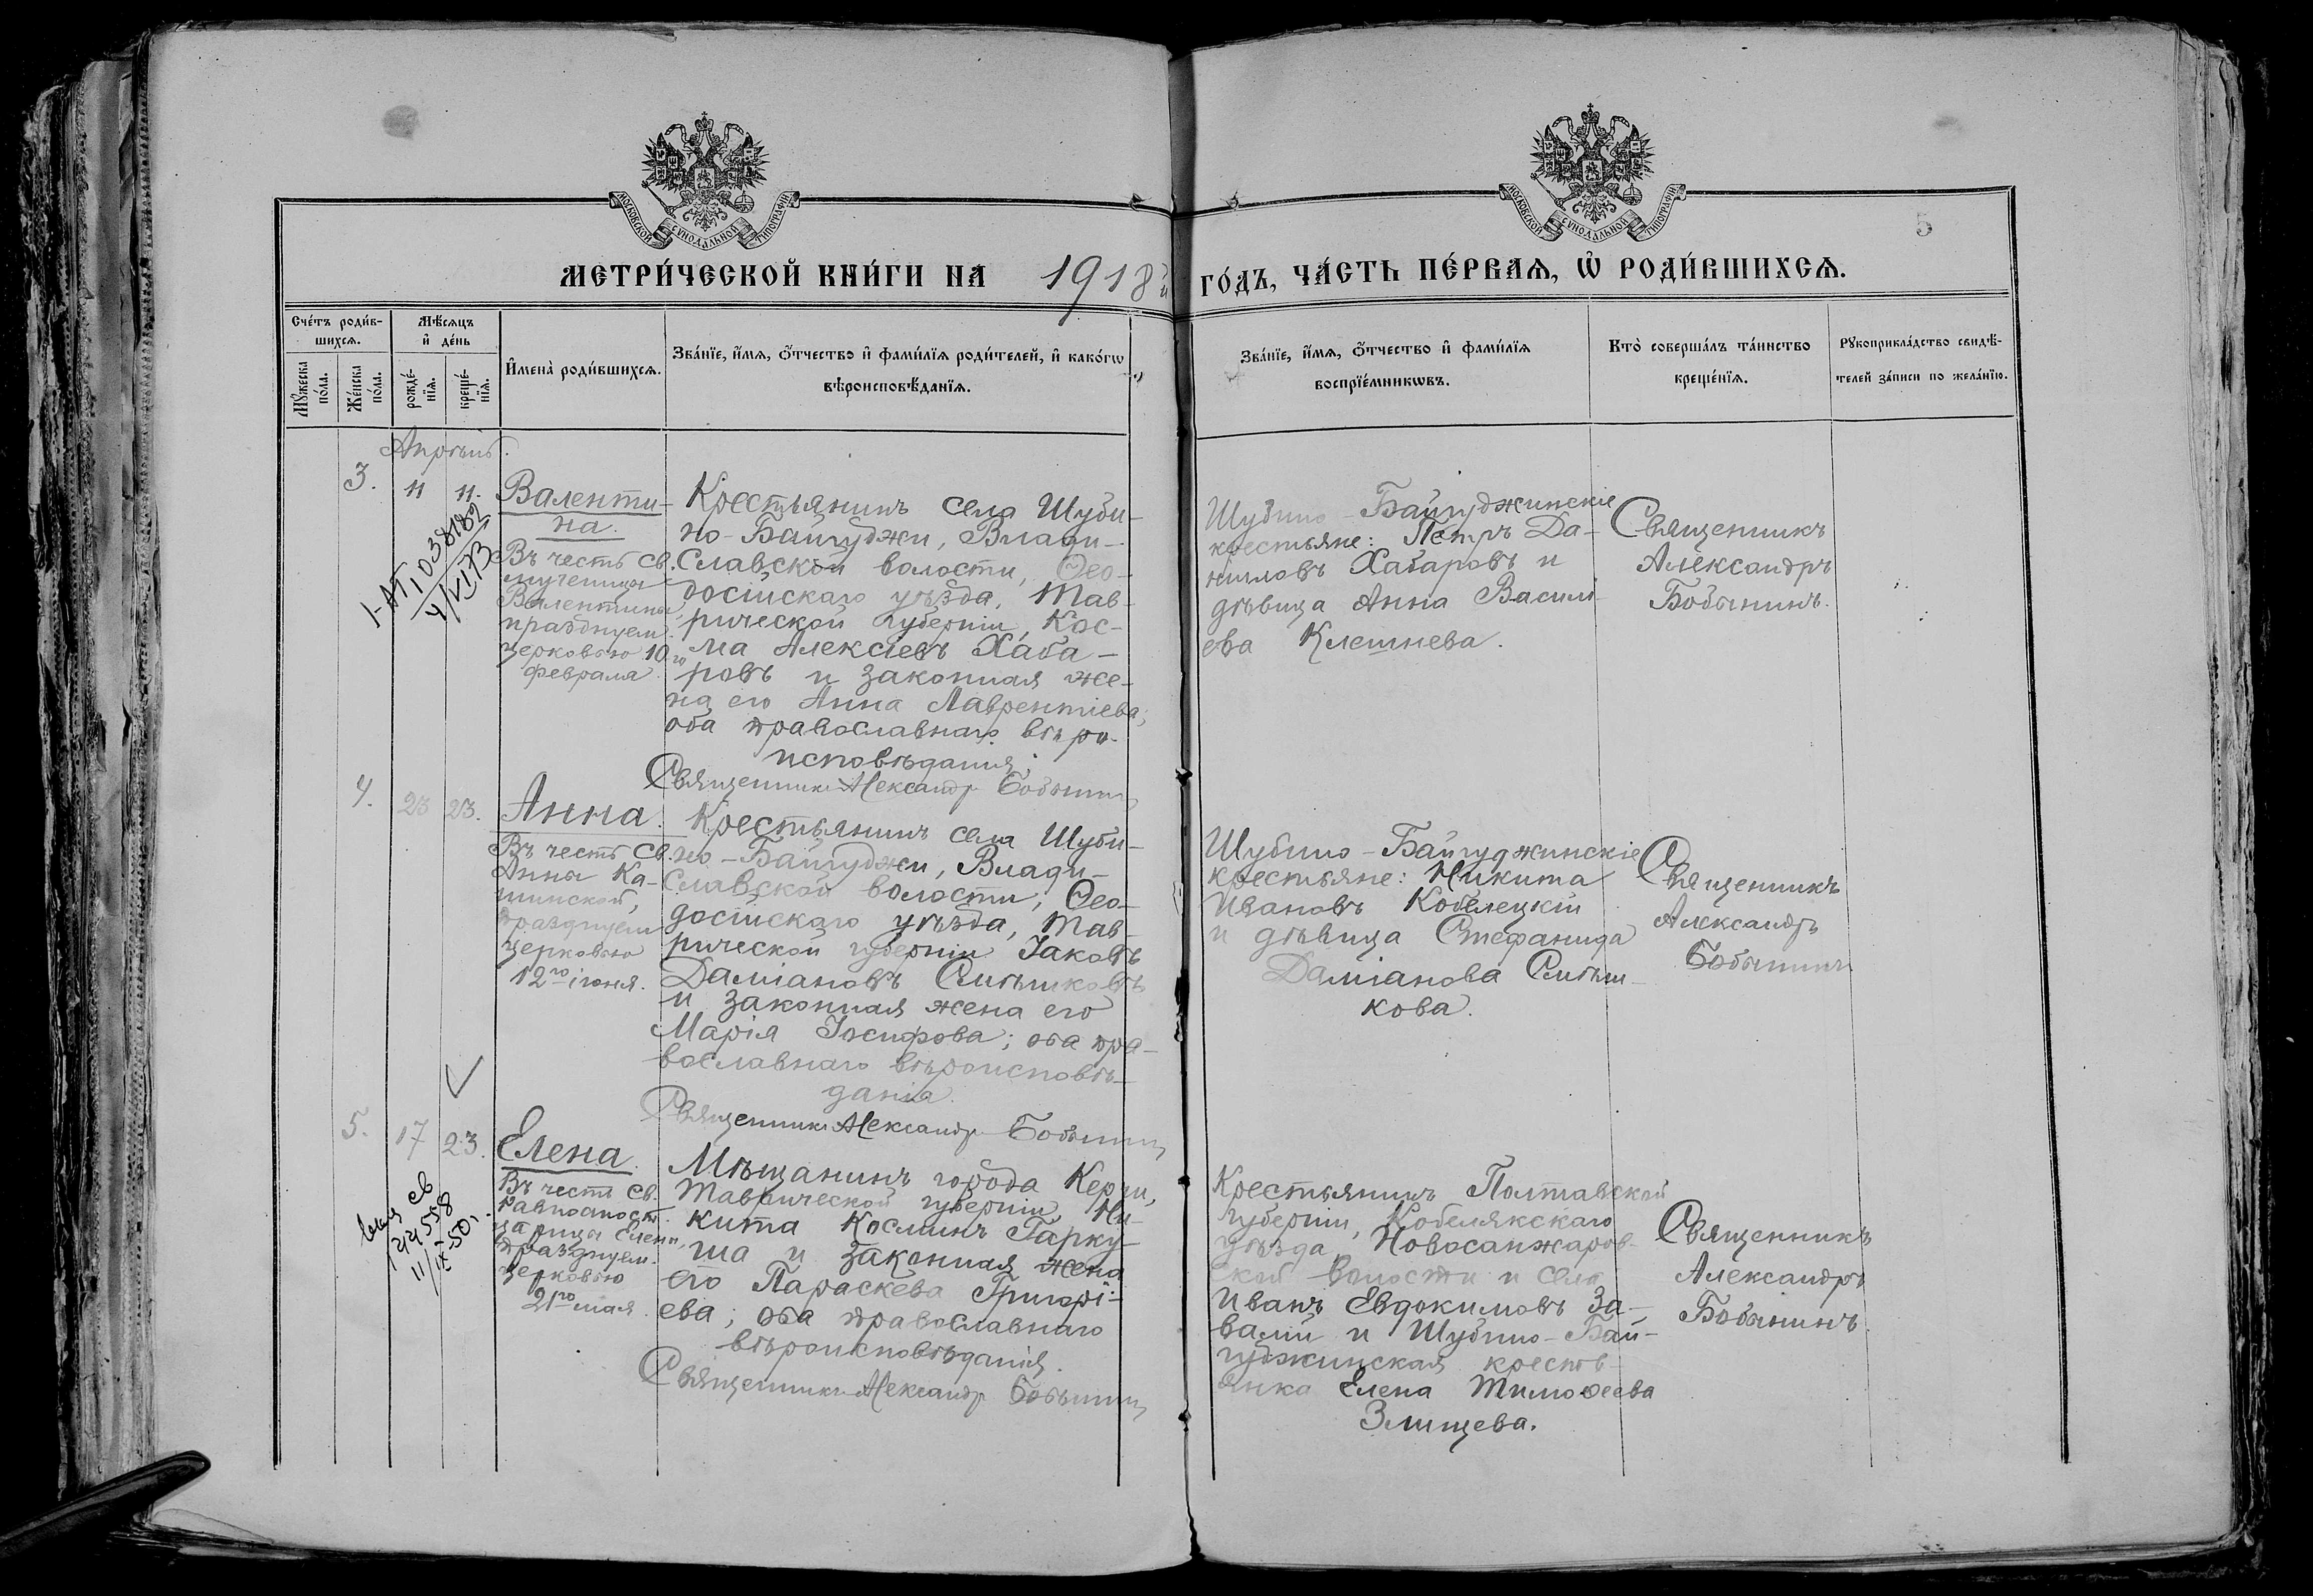 МОСКОВСКОЙ СѴНОДАЛЬНОЙ ТИПОГРАФІИ
МОСКОВСКОЙ СѴНОДАЛЬНОЙ ТИПОГРАФІИ
5
МЕТРИ́ЧЕСКОЙ КНИ́ГИ НА 1918й ГО́ДЪ, ЧА́СТЬ ПЕ́РВАЯ, Ѽ РОДИ́ВШИХСЯ.
Сче́тъ роди́в-
шихся.
Мѣ́сяцъ
и҆ де́нь
Мꙋ́жеска
по́ла.
Же́нска
по́ла.
рожде́-
нїя.
креще́-
нїя.
И҆мена̀ роди́вшихся.
Зва́нїе, и҆́мя, ѻ҆́тчество и҆ фами́лїя роди́телей, и҆ како́гѡ
вѣроисповѣ́данїя.
Зва́нїе, и҆́мя, ѻ҆́тчество и҆ фами́лїя
воспрїе́мникѡвъ.
Кто̀ соверша́лъ та́инство
креще́нїя.
Рꙋкоприкла́дство свидѣ́-
телей за́писи по жела́нїю.
Апрѣль.
3.
11
11.
Валенти-
на.
Въ честь св.
мученицы
Валентины,
празднуем.
церковью 10го
февраля.
1-АП 038182
4/VI 73
Крестьянинъ села Шуби-
но-Байгуджи, Влади-
славской волости, Ѳео-
досійскаго уѣзда, Тав-
рической губерніи, Кос-
ма Алексіевъ Хаба-
ровъ и законная же-
на его Анна Лаврентіева;
оба православнаго вѣро-
исповѣданія.
Священникъ Александръ Бобынинъ
Шубино-Байгуджинскіе
крестьяне: Петръ Да-
ниловъ Хабаровъ и
дѣвица Анна Василі-
ева Клешнева.
Священникъ
Александръ
Бобынинъ.
4.
23
23.
Анна.
Въ честь св.
Анны Ка-
шинской,
празднуем
церковью
12го іюня.
Крестьянинъ села Шуби-
но-Байгуджи, Влади-
славской волости, Ѳео-
досійскаго уѣзда, Тав-
рической губерніи Іаковъ
Даміановъ Смѣшковъ
и законная жена его
Марія Іосифова; оба пра-
вославнаго вѣроисповѣ-
данія.
Священникъ Александръ Бобынинъ
Шубино-Байгуджинскіе
крестьяне: Никита
Ивановъ Кобелецкій
и дѣвица Стефанида
Даміанова Смѣш-
кова.
Священникъ
Александръ
Бобынинъ
5.
17
23.
Елена.
Въ честь св.
равноапост.
царицы Елены,
празднуем.
церковью
21го мая.
св
144558
11/IX-50
Мѣщанинъ города Керчи,
Таврической губерніи, Ни-
кита Косминъ Гарку-
ша и законная жена
его Параскева Григорі-
ева; оба православнаго
вѣроисповѣданія.
Священникъ Александръ Бобынинъ
Крестьянинъ Полтавской
губерніи, Кобелякскаго
уѣзда, Новосанжаров-
ской волости и села
Иванъ Евдокимовъ За-
валій и Шубино-Бай-
гуджинская кресть-
янка Елена Тимоѳеева
Злищева.
Священникъ
Александръ
Бобынинъ.